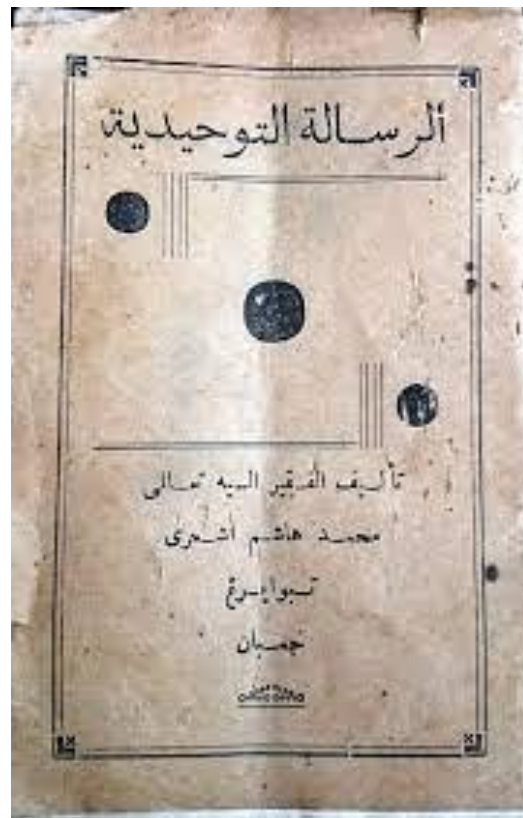 ألرسالة التوحيدية
تأليف الفقير اليه تعالى
محمد هاشم اشعرى
تبوايرغ
جمبان